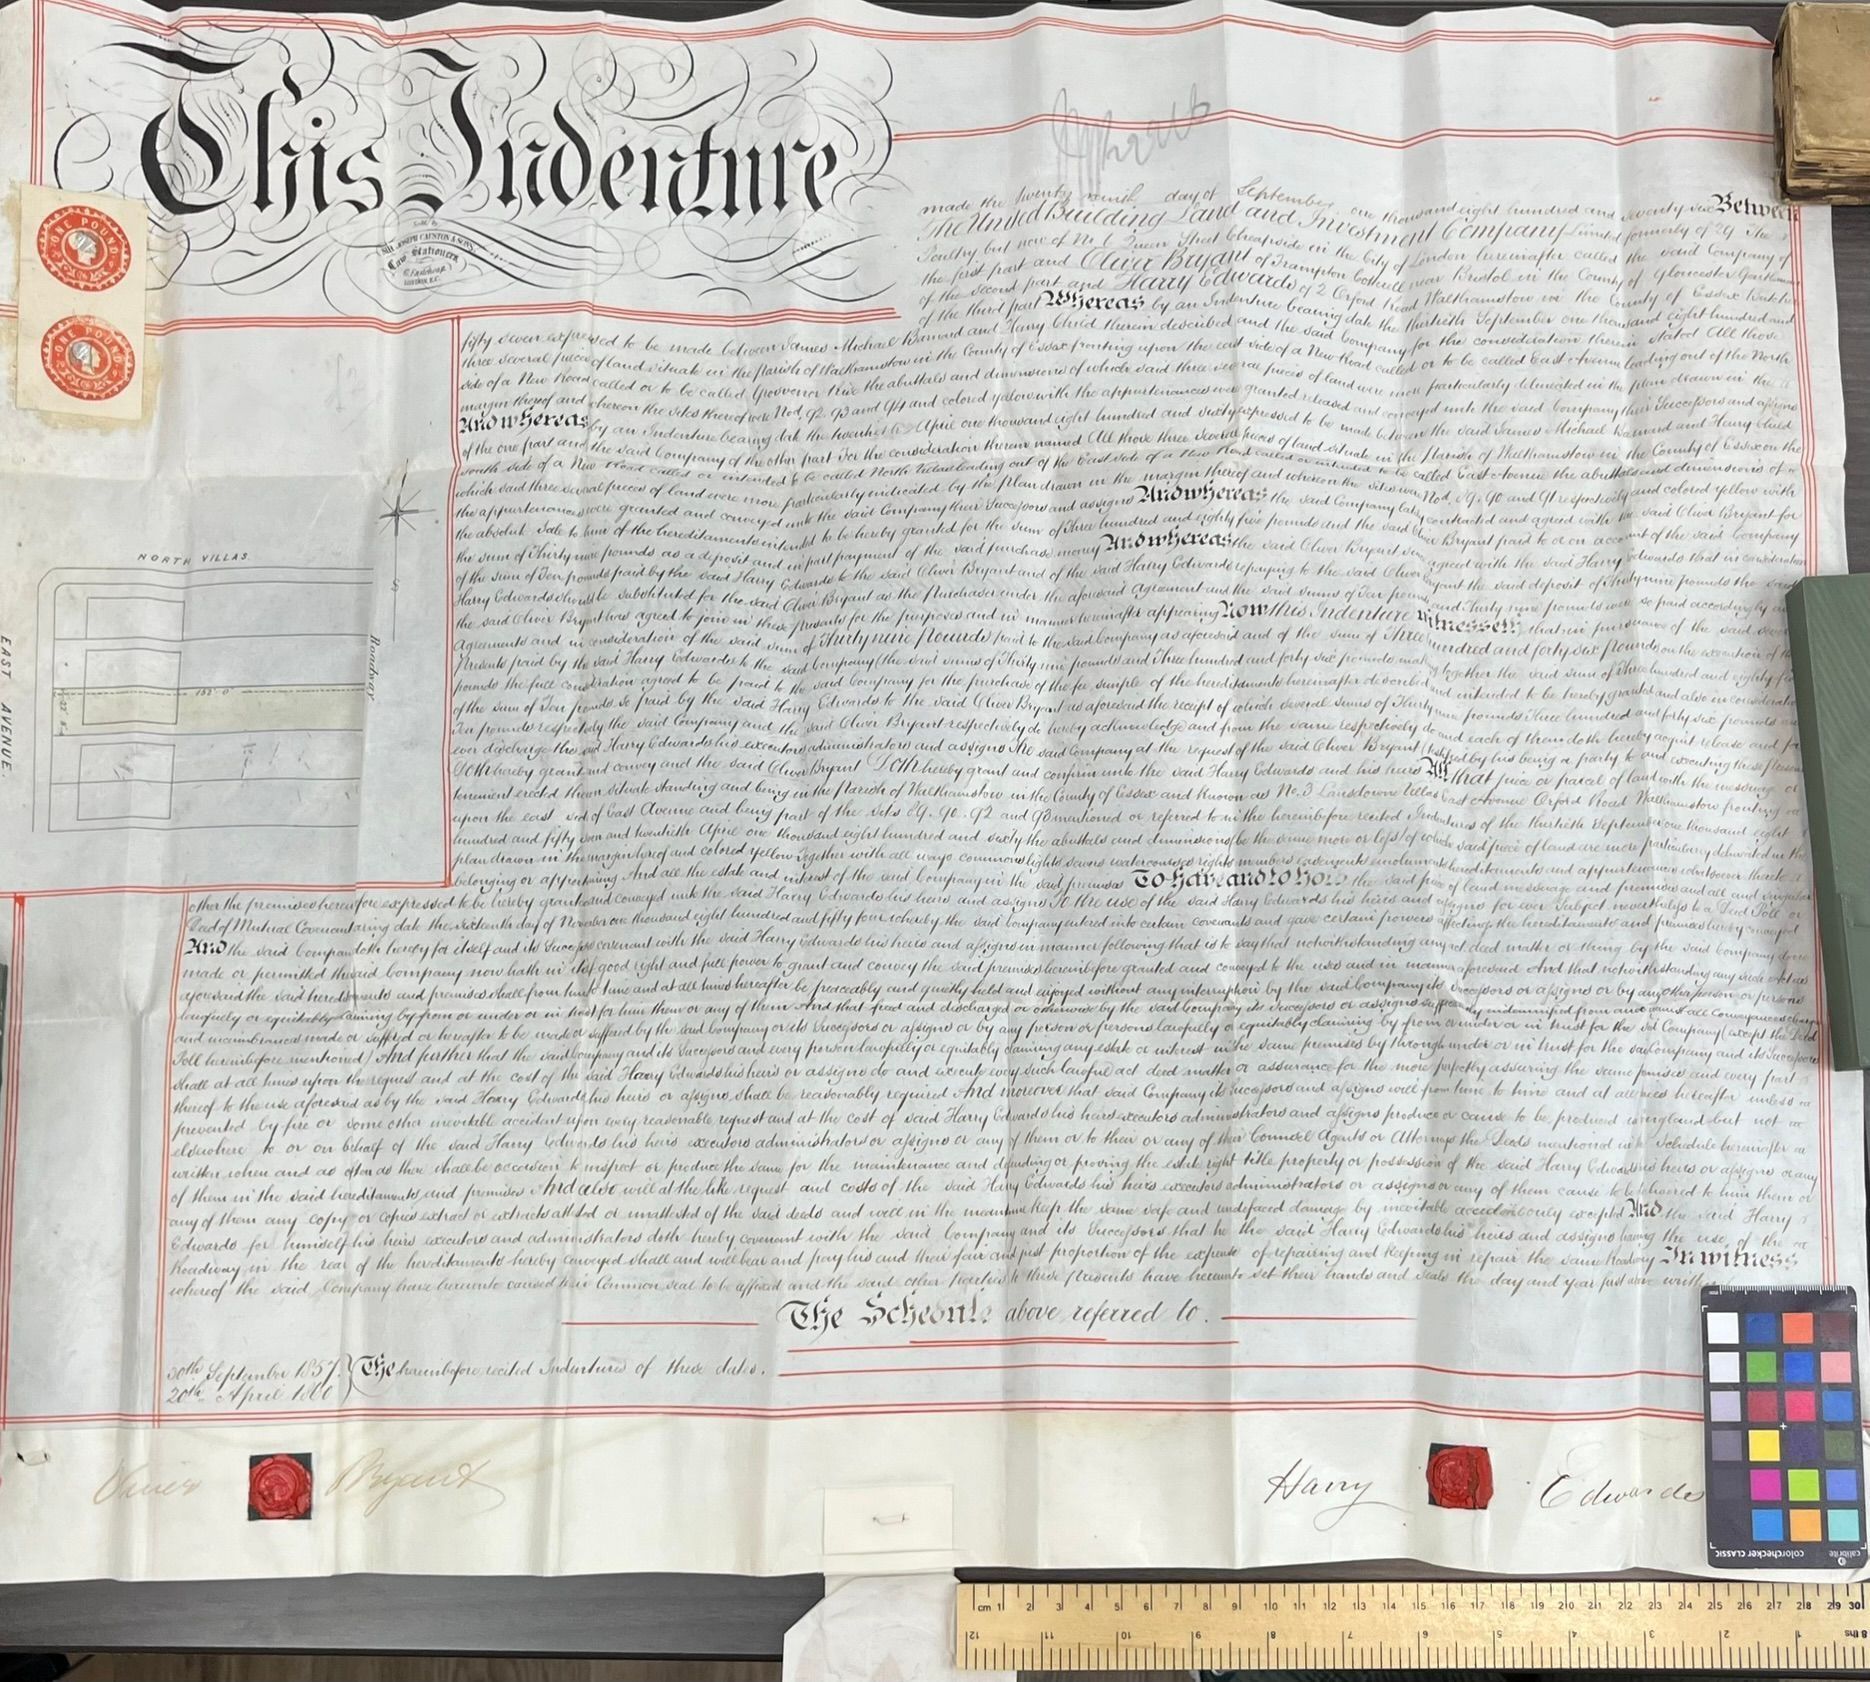 This Indenture
ONE POUND
ONE POUND
SIR JOSEPH CAUSTON & SONS
Law Stationers
Eastcheap
LONDON, E.C.
made the twenty ninth day of September one thousand eight hundred and seventy six Between
The United Building Land and Investment Company Limited formerly of 29 The
Poultry but now of No 6 Queen Street Cheapside in the City of London hereinafter called the said Company of
the first part and Oliver Bryant of Frampton Cotterell near Bristol in the County of Gloucester Gentleman
of the second part and Harry Edwards of 2 Orford Road Walthamstow in the County of Essex
of the third part Whereas by an Indenture bearing date the thirtieth September one thousand eight hundred and
fifty seven expressed to be made between James Michael Barnard and Harry Child therein described and the said Company for the consideration therein stated All those
three several pieces of land situate in the Parish of Walthamstow in the County of Essex fronting upon the east side of a New Road called or to be called East Avenue leading out of the North
side of a New Road called or to be called Grosvenor Rise the abuttals and dimensions of which said three several pieces of land were more particularly delineated in the plan drawn in the
margin thereof and whereon the sites thereof were Nod 92 93 and 94 and colored yellow with the appurtenances were granted released and conveyed unto the said Company their Successors and assigns
And whereas by an Indenture bearing date the twentieth April one thousand eight hundred and sixty expressed to be made between the said James Michael Barnard and Harry Child
of the one part and the said Company of the other part For the consideration therein named All those three several pieces of land situate in the Parish of Walthamstow in the County of Essex on the
south side of a New Road called or intended to be called North Villas leading out of the East side of a New Road called or intended to be called East Avenue the abuttals and dimensions of
which said three several pieces of land were more particularly indicated by the plan drawn in the margin thereof and whereon the sites were Nod 89. 90 and 91 respectively and colored yellow with
the appurtenances were granted and conveyed unto the said Company their Successors and assigns And whereas the said Company lately contracted and agreed with the said Oliver Bryant for
the absolute Sale to him of the hereditaments intended to be hereby granted for the sum of Three hundred and eighty five pounds and the said Oliver Bryant paid to or on account of the said Company
the sum of Thirty nine pounds as a deposit and in part payment of the said purchase money And whereas the said Oliver Bryant since agreed with the said Harry Edwards that in consideration
of the sum of Ten pounds paid by the said Harry Edwards to the said Oliver Bryant and of the said Harry Edwards repaying to the said Oliver Bryant the said deposit of Thirty nine pounds the said
Harry Edwards should be substituted for the said Oliver Bryant as the Purchaser under the aforesaid Agreement and the said sums of Ten pounds and Thirty nine pounds were so paid accordingly and
the said Oliver Bryant has agreed to join in these presents for the purposes and in manner hereinafter appearing Now this Indenture witnesseth that in pursuance of the said several
Agreements and in consideration of the said sum of Thirty nine Pounds paid to the said Company as aforesaid and of the sum of Three hundred and forty six Pounds on the execution of these
Presents paid by the said Harry Edwards to the said Company (the said sums of Thirty nine pounds and Three hundred and forty six pounds making together the said sum of Three hundred and eighty five
pounds the full consideration agreed to be paid to the said Company for the purchase of the fee simple of the hereditaments hereinafter described and intended to be hereby granted and also in consideration
of the sum of Ten pounds so paid by the said Harry Edwards to the said Oliver Bryant as aforesaid the receipt of which several sums of Thirty nine pounds Three hundred and forty six pounds and
Ten pounds respectively the said Company and the said Oliver Bryant respectively do hereby acknowledge and from the same respectively do and each of them doth hereby acquit release and for
ever discharge the said Harry Edwards his executors administrators and assigns The said Company at the request of the said Oliver Bryant (testified by his being a party to and executing these presents)
Doth hereby grant and convey and the said Oliver Bryant Doth hereby grant and confirm unto the said Harry Edwards and his heirs All that piece or parcel of land with the messuage or
tenement erected thereon situate standing and being in the Parish of Walthamstow in the County of Essex and known as No. 3 Lansdowne Villas East Avenue Orford Road Walthamstow fronting
upon the east side of East Avenue and being part of the sites 89. 90. 92 and 93 mentioned or referred to in the hereinbefore recited Indentures of the thirtieth September one thousand eight
hundred and fifty seven and twentieth April one thousand eight hundred and sixty the abuttals and dimensions (be the same more or less) of which said piece of land are more particularly delineated in the
plan drawn in the margin hereof and colored yellow Together with all ways commons lights sewers watercourses rights members easements emoluments hereditaments and appurtenances whatsoever thereto
belonging or appertaining And all the estate and interest of the said Company in the said premises To have and to hold the said piece of land messuage and premises and all and singular
other the premises hereinbefore expressed to be hereby granted and conveyed unto the said Harry Edwards his heirs and assigns To the use of the said Harry Edwards his heirs and assigns for ever Subject nevertheless to a Deed Poll or
Deed of Mutual Covenant bearing date the sixteenth day of November one thousand eight hundred and fifty four whereby the said Company entered into certain covenants and gave certain powers affecting the hereditaments and premises hereby conveyed
And the said Company doth hereby for itself and its Successors covenant with the said Harry Edwards his heirs and assigns in manner following that is to say that notwithstanding any act deed matter or thing by the said Company done
made or permitted the said Company now hath in itself good right and full power to grant and convey the said premises hereinbefore granted and conveyed to the uses and in manner aforesaid And that notwithstanding any such act as
aforesaid the said hereditaments and premises shall from time to time and at all times hereafter be peaceably and quietly held and enjoyed without any interruption by the said Company its Successors or assigns or by any other person or persons
lawfully or equitably claiming by from or under or in trust for him them or any of them And that freed and discharged or otherwise by the said Company its Successors or assigns sufficiently indemnified from and against all conveyances charges
and incumbrances made or suffered or hereafter to be made or suffered by the said Company or its Successors or assigns or by any person or persons lawfully or equitably claiming by from or under or in trust for the said Company (except the Deed
Poll hereinbefore mentioned) And further that the said Company and its Successors and every person lawfully or equitably claiming any estate or interest in the same premises by through under or in trust for the said Company and its Successors
shall at all times upon the request and at the cost of the said Harry Edwards his heirs or assigns do and execute every such lawful act deed matter or assurance for the more perfectly assuring the same premises and every part
thereof to the use aforesaid as by the said Harry Edwards his heirs or assigns shall be reasonably required And moreover that said Company its Successors and assigns will from time to time and at all times hereafter unless
prevented by fire or some other inevitable accident upon every reasonable request and at the cost of said Harry Edwards his heirs executors administrators and assigns produce or cause to be produced in England but not
elsewhere to or on behalf of the said Harry Edwards his heirs executors administrators or assigns or any of them or to their or any of their Counsel Agents or Attorneys the Deeds mentioned in the Schedule hereinafter
written when and as often as there shall be occasion to inspect or produce the same for the maintenance and defending or proving the estate right title property or possession of the said Harry Edwards his heirs or assigns or any
of them in the said hereditaments and premises And also will at the like request and costs of the said Harry Edwards his heirs executors administrators or assigns or any of them cause to be delivered to him them or
any of them any copy or copies extract or extracts attested or unattested of the said deeds and will in the meantime keep the same safe and undefaced damage by inevitable accident only excepted And the said Harry
Edwards for himself his heirs executors and administrators doth hereby covenant with the said Company and its Successors that he the said Harry Edwards his heirs and assigns having the use of the
Roadway in the rear of the hereditaments hereby conveyed shall and will bear and pay his and their fair and just proportion of the expense of repairing and keeping in repair the same Roadway In witness
whereof the said Company have hereunto caused their Common seal to be affixed and the said other parties to these presents have hereunto set their hands and seals the day and year first above written
The Schedule above referred to.
30th September 1857
20th April 1860
The hereinbefore recited Indentures of these dates.
NORTH VILLAS.
EAST AVENUE.
Roadway
152' 0"
S
Oliver Bryant
Harry Edwards
colorchecker CLASSIC
calibrite
cm 1 2 3 4 5 6 7 8 9 10 11 12 13 14 15 16 17 18 19 20 21 22 23 24 25 26 27 28 29 30
12 11 10 9 8 7 6 5 4 3 2 1 8 ths